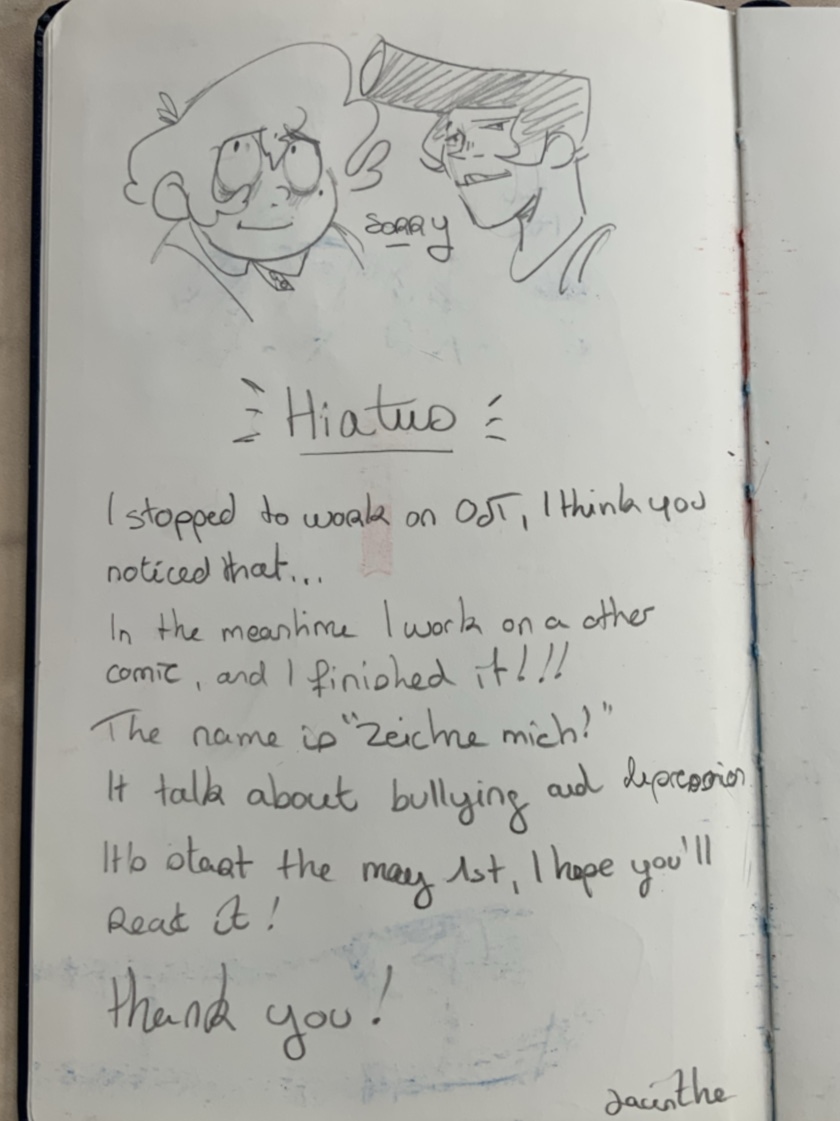 Sorry
Hiatus
I stopped to work on OJT, I think you
noticed that...
In the meantime I work on a other
comic, and I finished it!!!
The name is "Zeichne mich!"
It talk about bullying and depression
It's start the may 1st, I hope you'll
Read it!
thank you!
Jacinthe